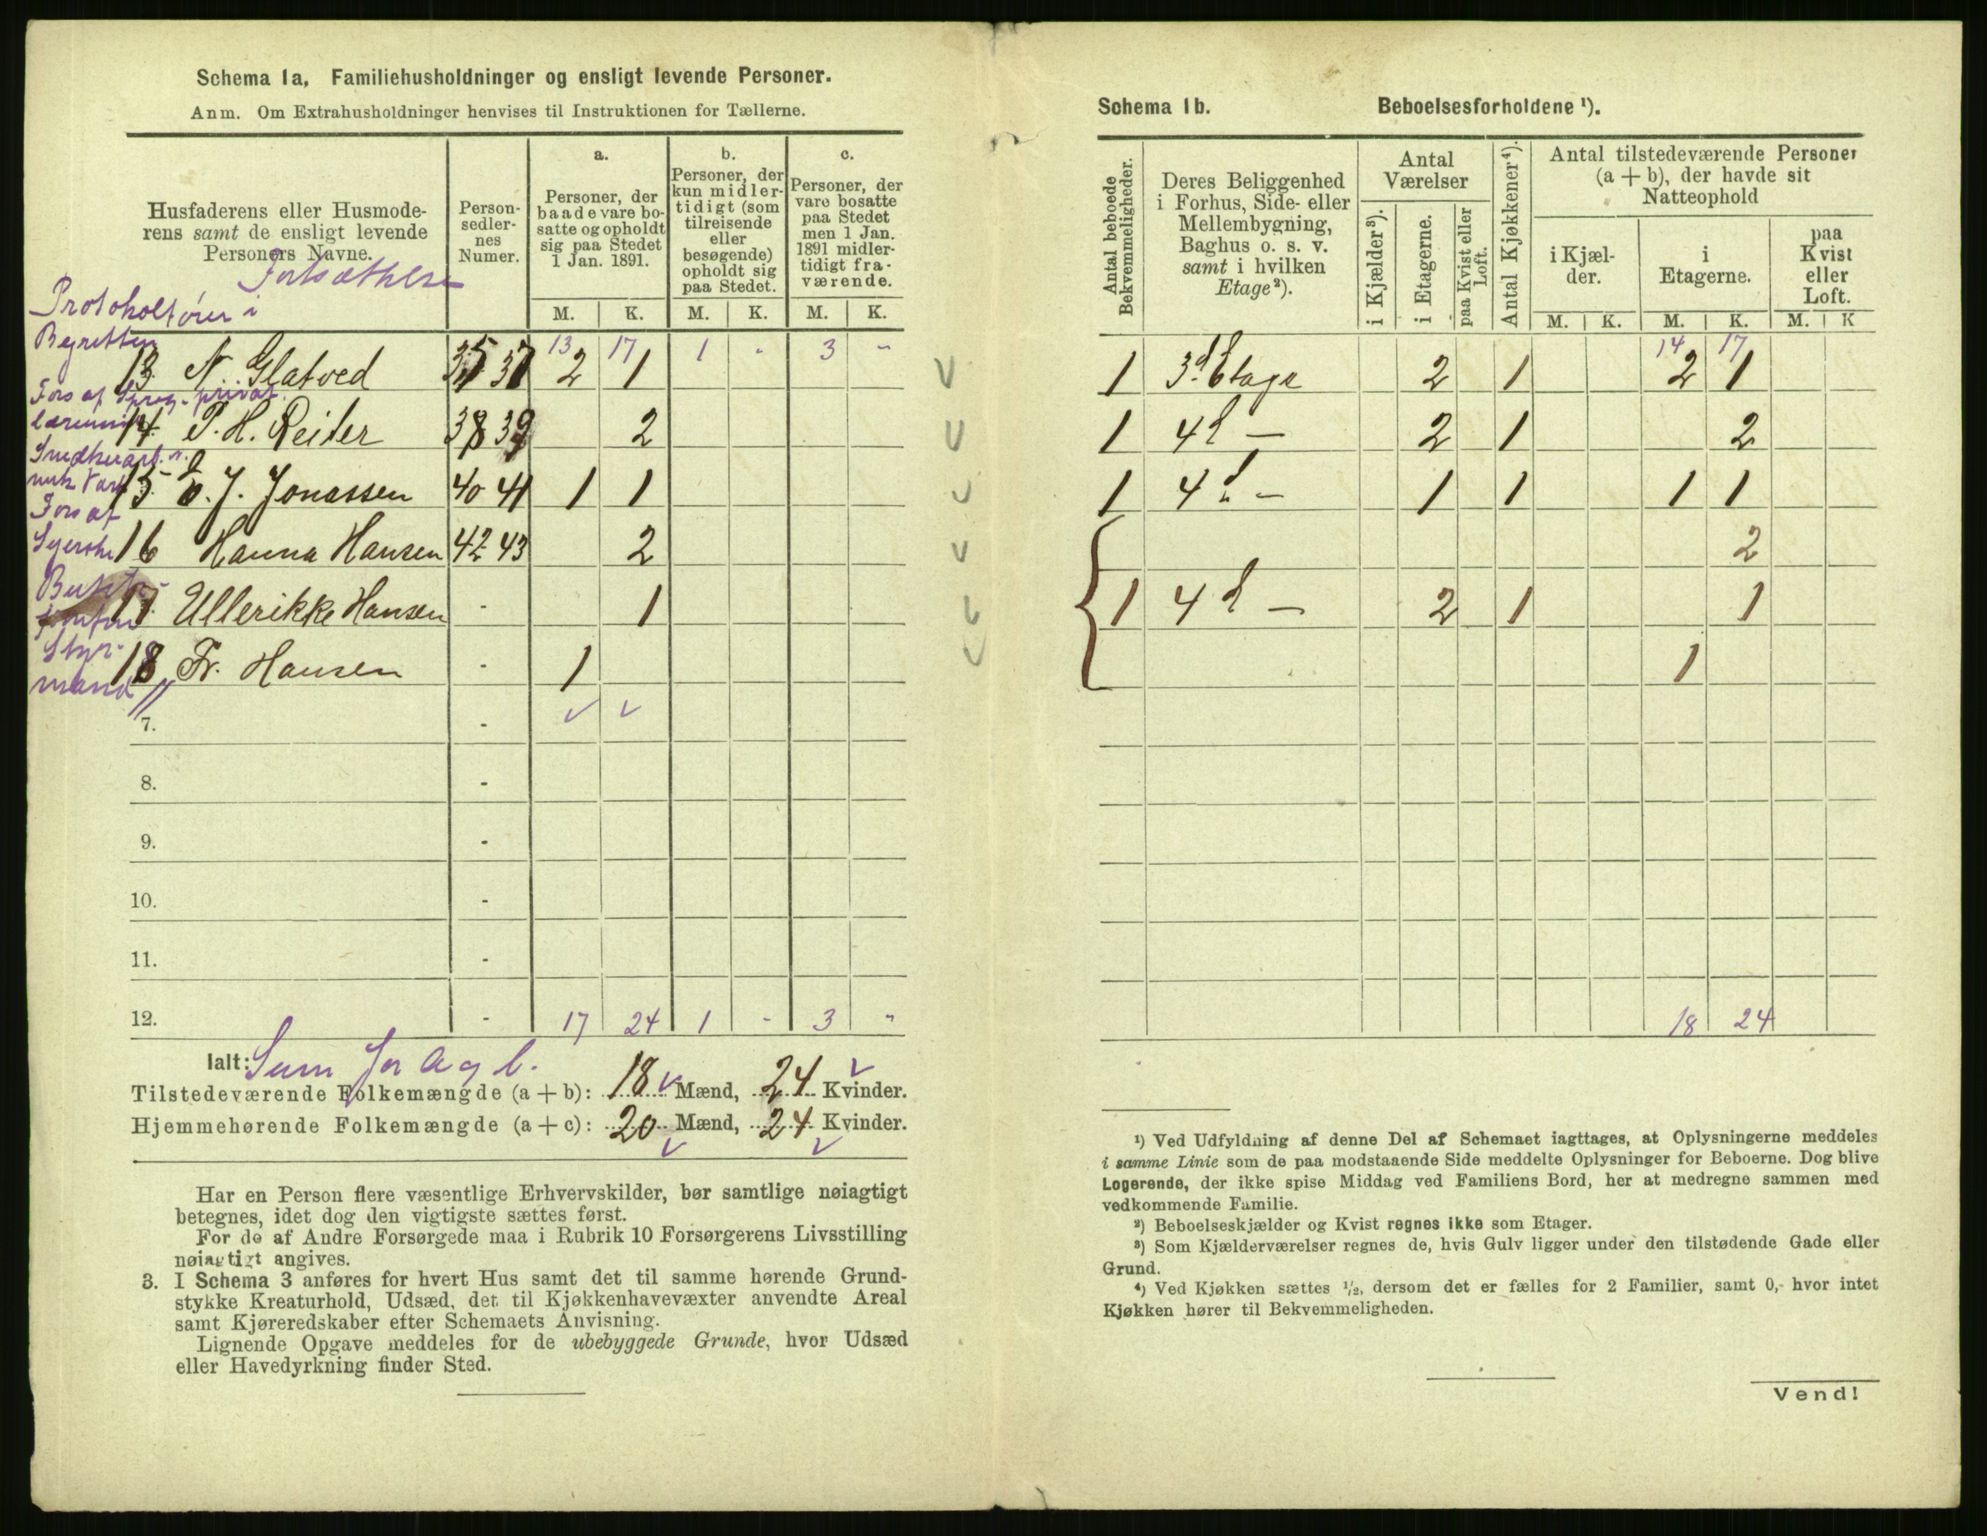 Schema 1a, Familiehusholdninger og ensligt levende Personer.
Anm. Om Extrahusholdninger henvises til Instruktionen for Tællerne.
Husfaderens eller Husmode-
rens samt de ensligt levende
Personers Navne.
Person-
sedler-
nes
Numer.
a.
Personer, der
baade vare bo-
satte og opholdt
sig paa Stedet
1 Jan. 1891.
b.
Personer, der
kun midler-
tidigt (som
tilreisende
eller
besøgende)
opholdt sig
paa Stedet.
c.
Personer, der
vare bosatte
paa Stedet
men 1 Jan.
1891 midler-
tidigt fra-
værende.
M. K. M. K. M. K.
Fortsættelse
Protokolfører i
Byretten
13 17 1 - 3 "
13. N. Glatved 35 37 2 1
Fors af Sprog- privat.
14. P. H. Reiter 38 39 2
15. E. J. Jonassen 40 41 1 1
Fors af
16 Hanna Hansen 42 43 2
17. Ullerikke Hansen - 1
Styr-
mand
18 Fr. Hansen - 1
7. -
8. -
9. -
10. -
11. -
12. - 17 24 1 - 3 "
Ialt: Sum for a og b.
Tilstedeværende Folkemængde (a + b): 18 Mænd, 24 Kvinder.
Hjemmehørende Folkemængde (a + c): 20 Mænd, 24 Kvinder.
Har en Person flere væsentlige Erhvervskilder, bør samtlige nøiagtigt
betegnes, idet dog den vigtigste sættes først.
For de af Andre Forsørgede maa i Rubrik 10 Forsørgerens Livsstilling
nøiagtigt angives.
3. I Schema 3 anføres for hvert Hus samt det til samme hørende Grund-
stykke Kreaturhold, Udsæd, det til Kjøkkenhavevæxter anvendte Areal
samt Kjøreredskaber efter Schemaets Anvisning.
Lignende Opgave meddeles for de ubebyggede Grunde, hvor Udsæd
eller Havedyrkning finder Sted.
Schema 1b. Beboelsesforholdene ¹).
Antal beboede
Bekvemmeligheder.
Deres Beliggenhed
i Forhus, Side- eller
Mellembygning,
Baghus o. s. v.
samt i hvilken
Etage²).
Antal
Værelser
i Kjælder³).
i Etagerne.
paa Kvist eller
Loft.
Antal Kjøkkener⁴).
Antal tilstedeværende Personer
(a + b), der havde sit
Natteophold
i Kjæl-
der.
i
Etagerne.
paa
Kvist
eller
Loft.
M. K. M. K. M. K
14 17
1 3d Etage 2 1 2 1
1 4d — 2 1 2
1 4d — 1 1 1 1
2
1 4d — 2 1 1
1
18 24
¹) Ved Udfyldning af denne Del af Schemaet iagttages, at Oplysningerne meddeles
i samme Linie som de paa modstaaende Side meddelte Oplysninger for Beboerne. Dog blive
Logerende, der ikke spise Middag ved Familiens Bord, her at medregne sammen med
vedkommende Familie.
²) Beboelseskjælder og Kvist regnes ikke som Etager.
³) Som Kjælderværelser regnes de, hvis Gulv ligger under den tilstødende Gade eller
Grund.
⁴) Ved Kjøkken sættes ½, dersom det er fælles for 2 Familier, samt 0, hvor intet
Kjøkken hører til Bekvemmeligheden.
Vend!